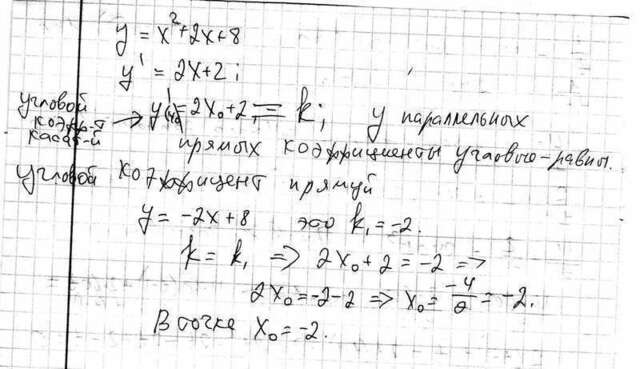 y = x² + 2x + 8
y' = 2x + 2;
угловой коэфф-т касат-й → y'(x₀) = 2x₀ + 2 = k; у параллельных
прямых коэффициенты угловые-равны.
угловой коэффицент прямуй
y = -2x + 8 это k₁ = -2.
k = k₁ => 2x₀ + 2 = -2 =>
2x₀ = -2 - 2 => x₀ = -4/2 = -2.
В точке x₀ = -2.